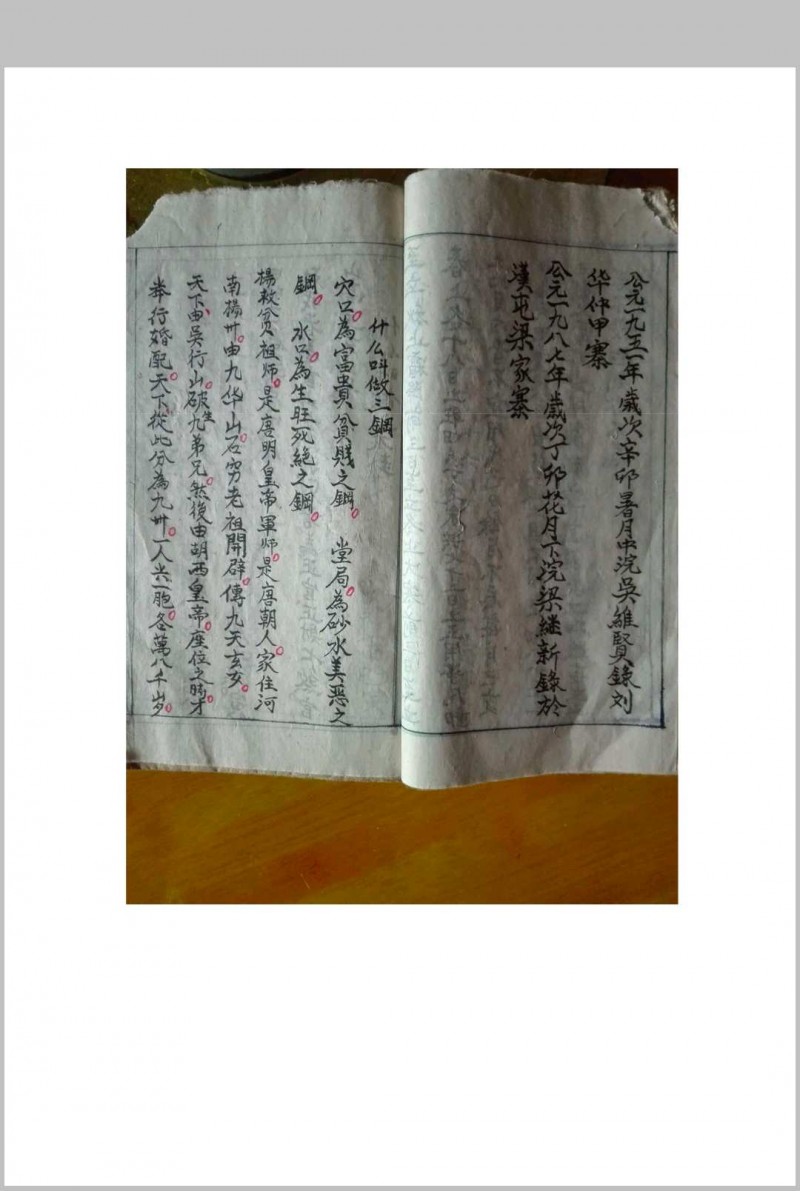 公元一九五一年歲次辛卯暑月中浣吳維賢錄刘
华仲甲寨
公元一九八七年歲次丁卯花月下浣梁继新錄於
漢屯梁家寨
什么叫做三鋼
穴口為富貴貧賎之鋼。堂局為砂水美恶之
鋼。水口為生旺死絶之鋼。
楊救貧祖师。是唐明皇帝軍师。是唐朝人。家住河
南揚卅。由九华山。石穷老祖開辟。傳九天玄女。
天下由吳行山。破生九弟兄。然後由胡西皇帝。座位之時才
举行婚配。天下從此分為九卅。一人共一胞。各萬八千岁。